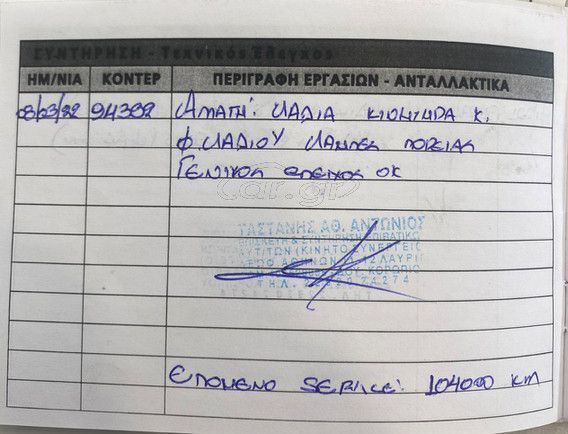 ΣΥΝΤΗΡΗΣΗ - Τεχνικός Έλεγχος
ΗΜ/ΝΙΑ ΚΟΝΤΕΡ ΠΕΡΙΓΡΑΦΗ ΕΡΓΑΣΙΩΝ - ΑΝΤΑΛΛΑΚΤΙΚΑ
08/03/22 94382 ΑΛΛΑΓΗ: ΛΑΔΙΑ ΚΙΝΗΤΗΡΑ Κ.
Φ. ΛΑΔΙΟΥ ΛΑΜΠΕΣ ΠΟΡΕΙΑΣ
ΓΕΝΙΚΟΣ ΕΛΕΓΧΟΣ ΟΚ
car.gr
ΤΑΣΤΑΝΗΣ ΑΘ. ΑΝΤΩΝΙΟΣ
ΕΠΙΣΚΕΥΗ & ΣΥΝΤΗΡΗΣΗ
ΚΟΡΩΠΙ
ΕΠΟΜΕΝΟ SERVICE: 104000 KM